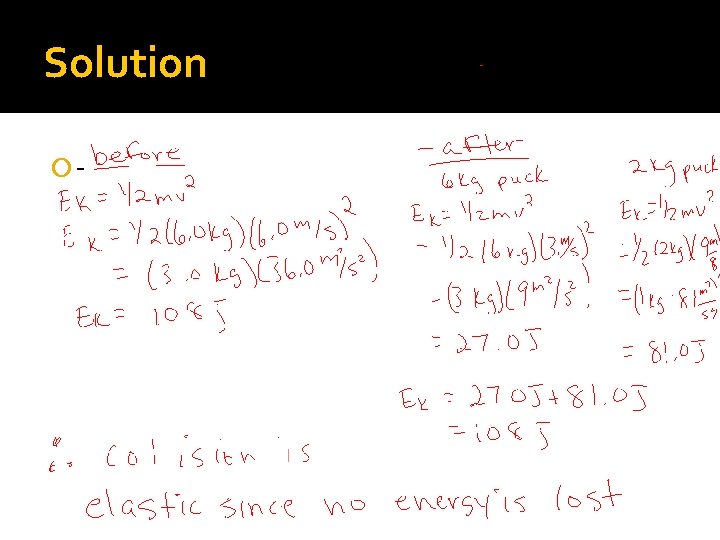 Solution
- before
EK = 1/2 mv²
EK = 1/2 (6.0kg)(6.0 m/s)²
= (3.0 kg)(36.0 m²/s²)
EK = 108 J
- after
6 kg puck
EK = 1/2 mv²
- 1/2 (6 kg)(3 m/s)²
- (3 kg)(9 m²/s²)
= 27.0 J
2 kg puck
EK = 1/2 mv²
= 1/2 (2kg)(9 m/s
= (1 kg · 81 m²/s²)
= 81.0 J
EK = 27.0J + 81.0J
= 108 J
∴ collision is
elastic since no energy is lost